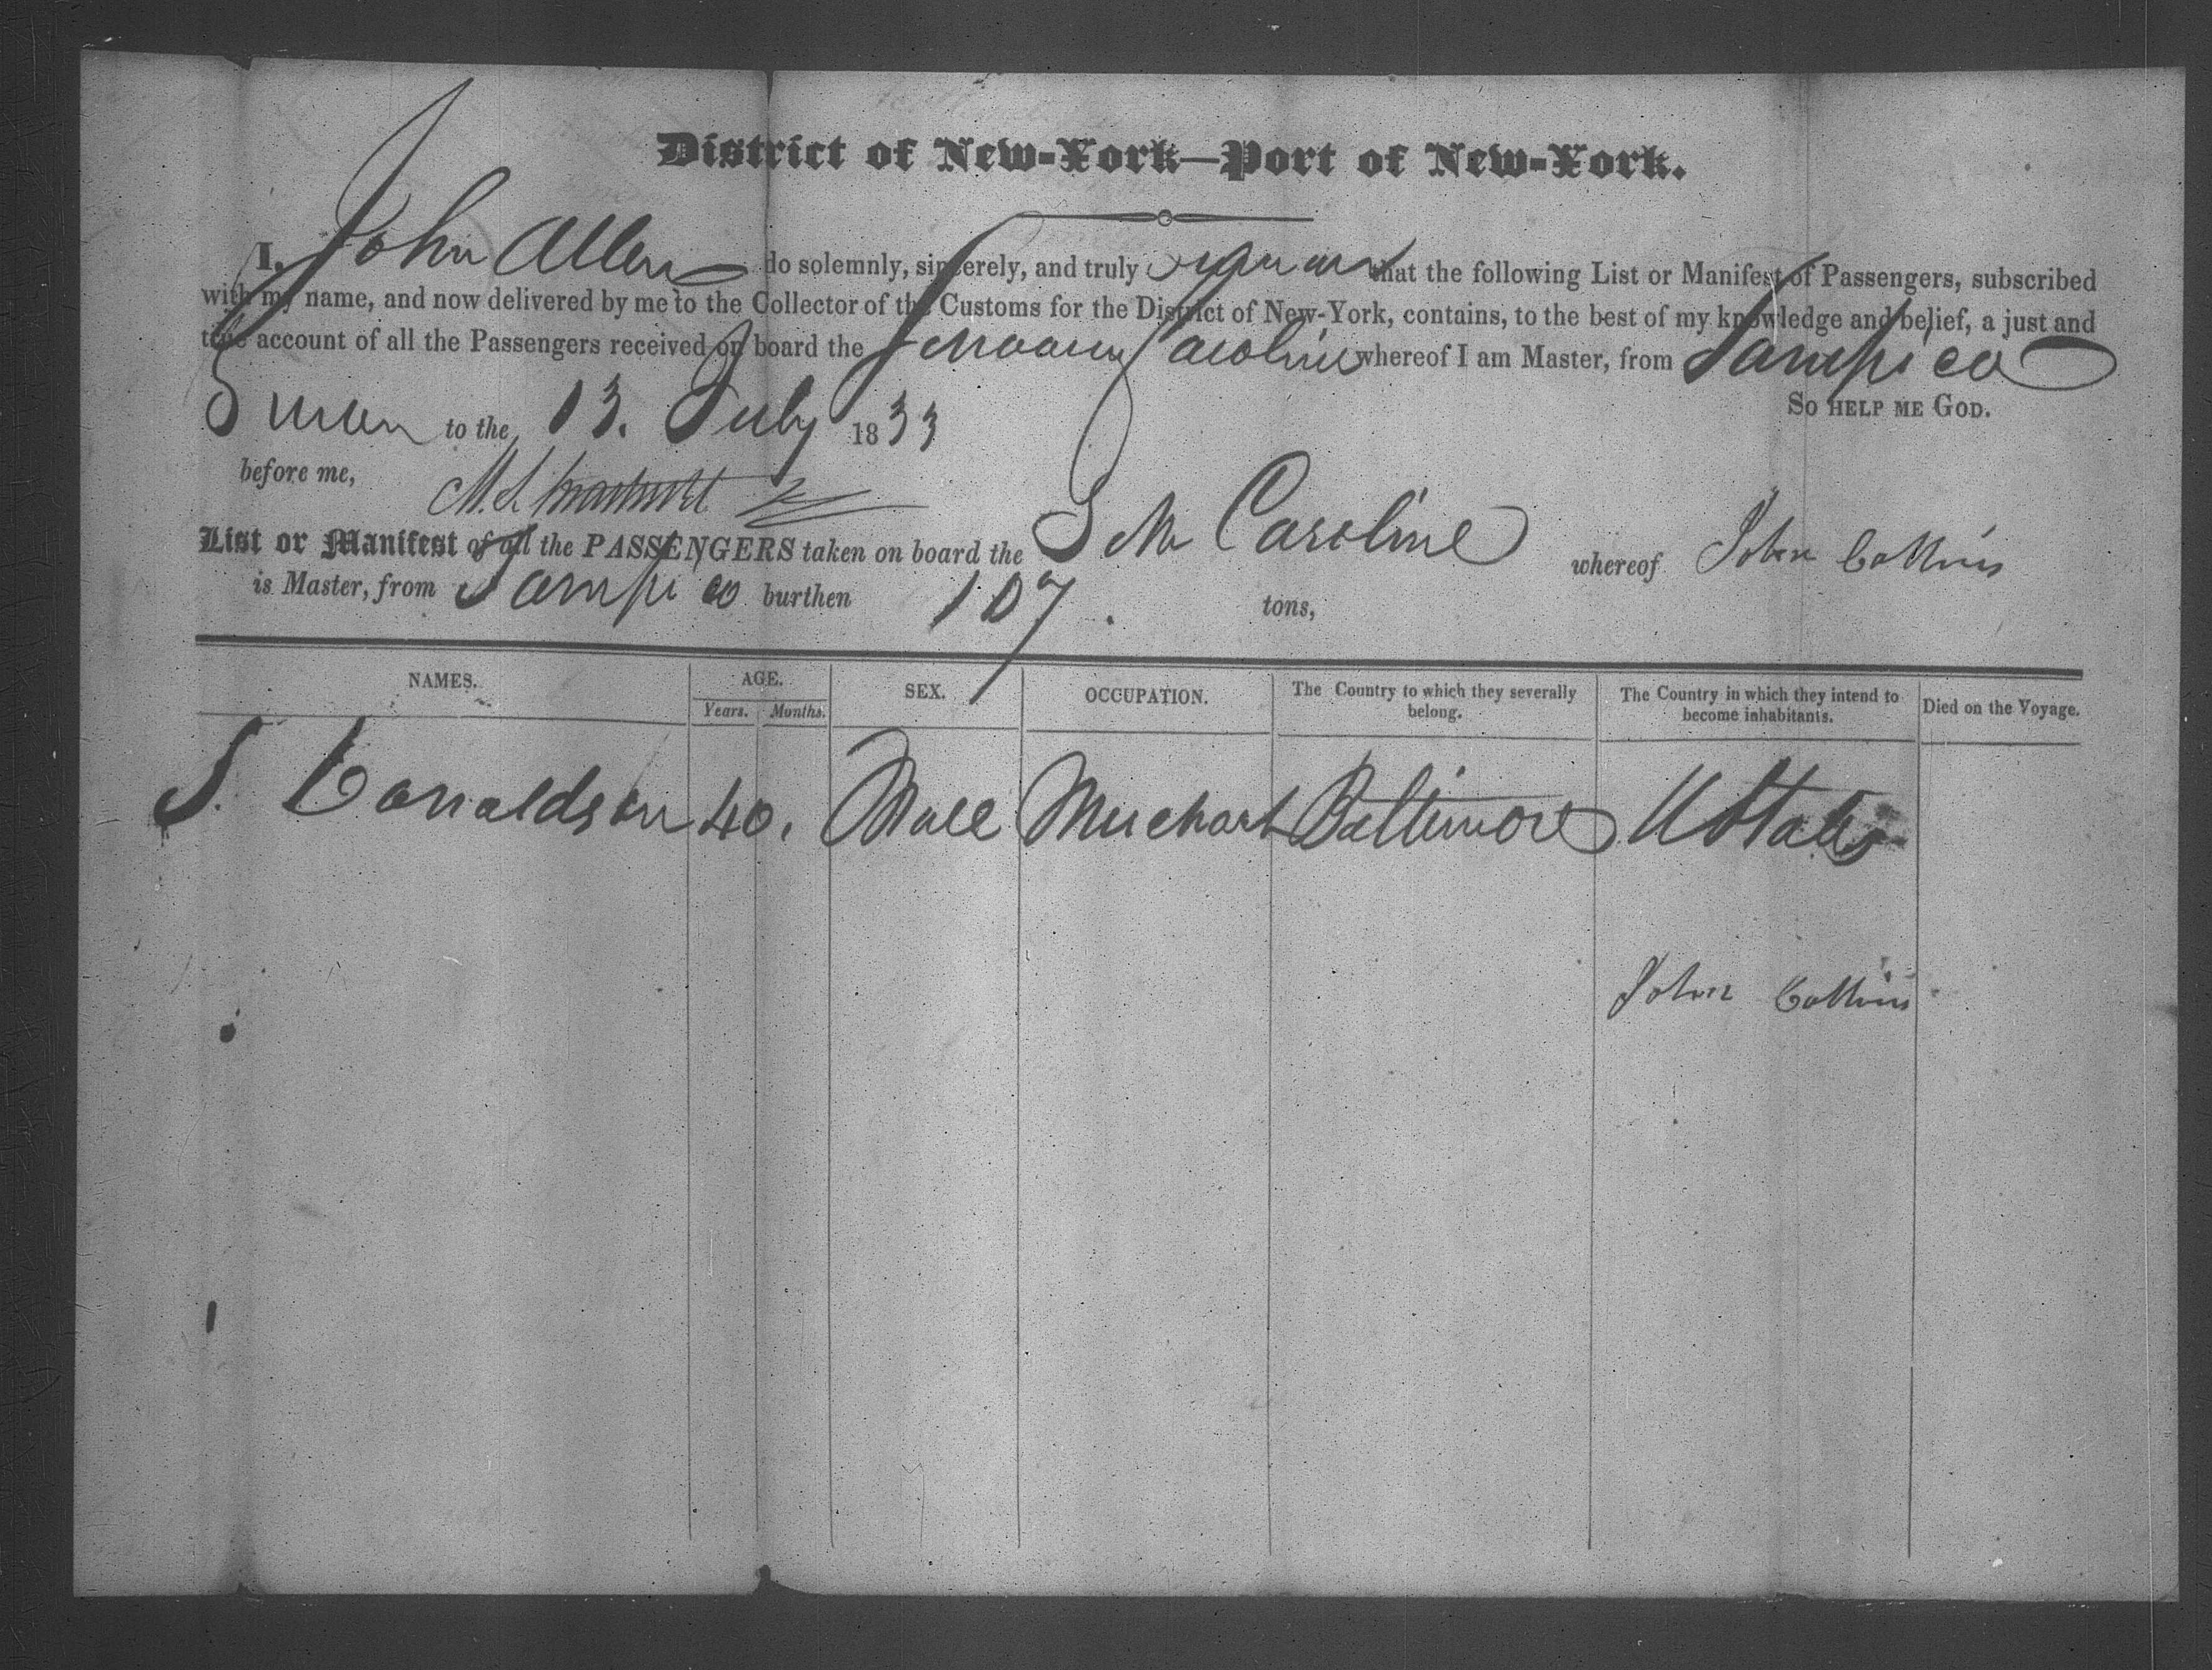 District of New-York—Port of New-York.
I, John Allen do solemnly, sincerely, and truly that the following List or Manifest of Passengers, subscribed
with my name, and now delivered by me to the Collector of the Customs for the District of New-York, contains, to the best of my knowledge and belief, a just and
true account of all the Passengers received on board the Caroline whereof I am Master, from Tampico
So HELP ME GOD.
to the 13. July 1833
before me,
List or Manifest of all the PASSENGERS taken on board the Caroline whereof John Collins
is Master, from Tampico burthen 107. tons,
NAMES. AGE. SEX. OCCUPATION. The Country to which they severally belong. The Country in which they intend to become inhabitants. Died on the Voyage.
Years. Months.
S. Donaldson 40. Male Merchant Baltimore U States
John Collins